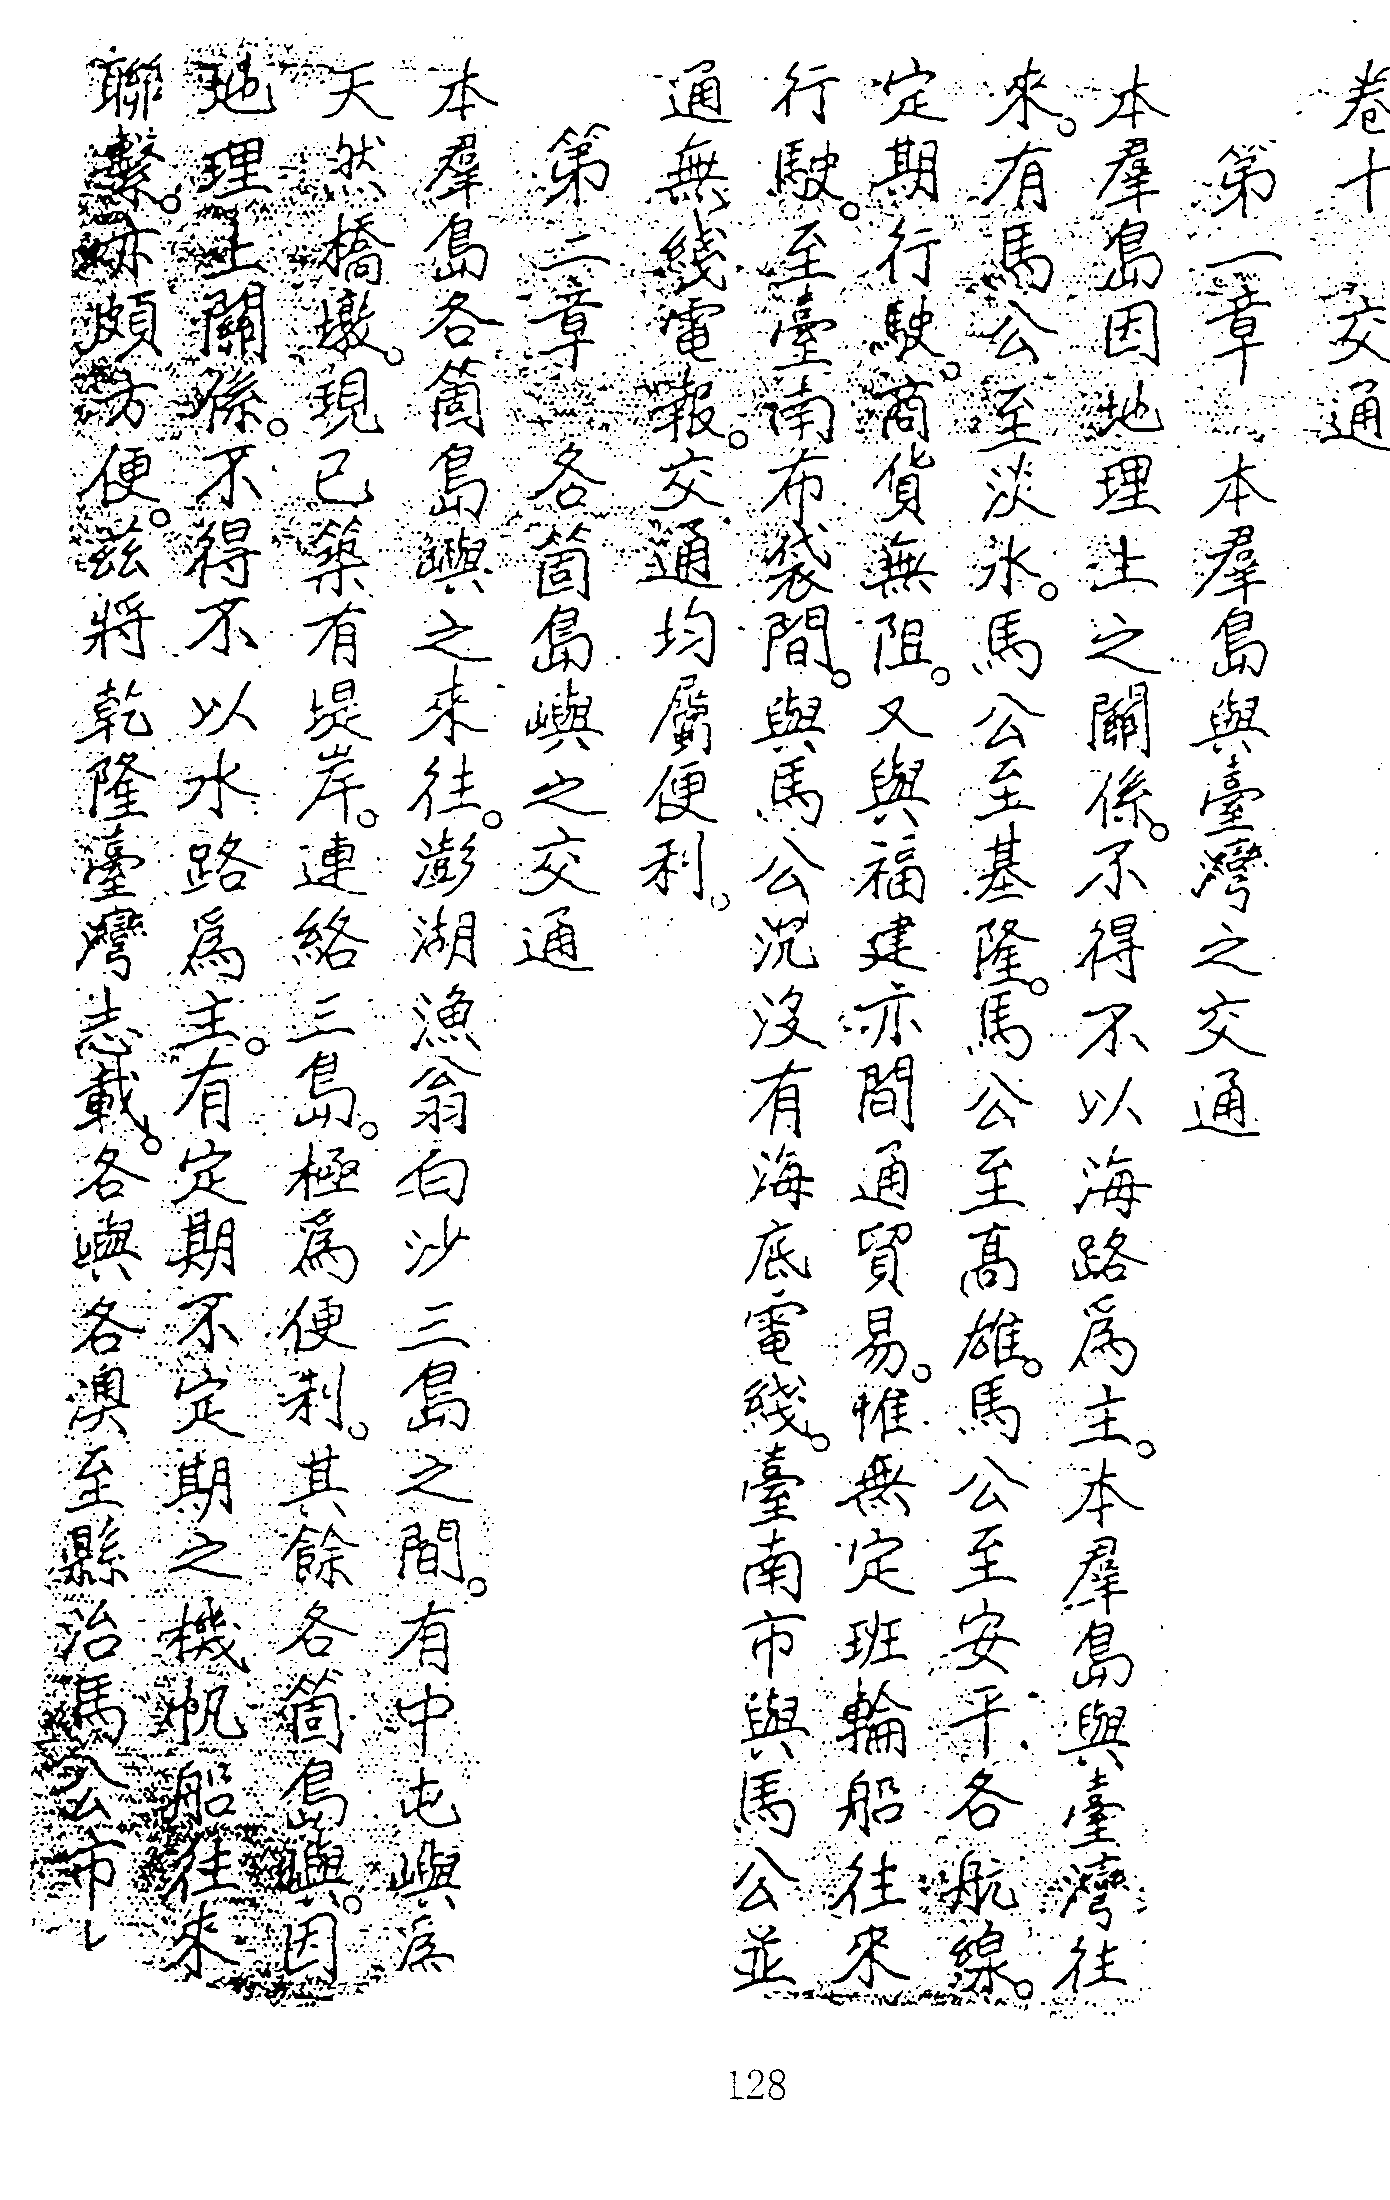 卷十 交通
第一章 本羣島與臺灣之交通
本羣島因地理上之關係。不得不以海路爲主。本羣島與臺灣往
來。有馬公至淡水。馬公至基隆。馬公至高雄。馬公至安平各航線。
定期行駛。商貨無阻。又與福建亦間通貿易。惟無定班輪船往來
行駛。至臺南布袋間。與馬公沉沒有海底電綫。臺南市與馬公並
通無綫電報。交通均屬便利。
第二章 各箇島嶼之交通
本羣島各箇島嶼之來往。澎湖漁翁白沙三島之間。有中屯嶼爲
天然橋墩。現已築有堤岸。連絡三島。極爲便利。其餘各箇島嶼。因
地理上關係。不得不以水路爲主。有定期不定期之機帆船往來
聯繫。亦頗方便。茲將乾隆臺灣志載。各嶼各澳至縣治馬公市
128